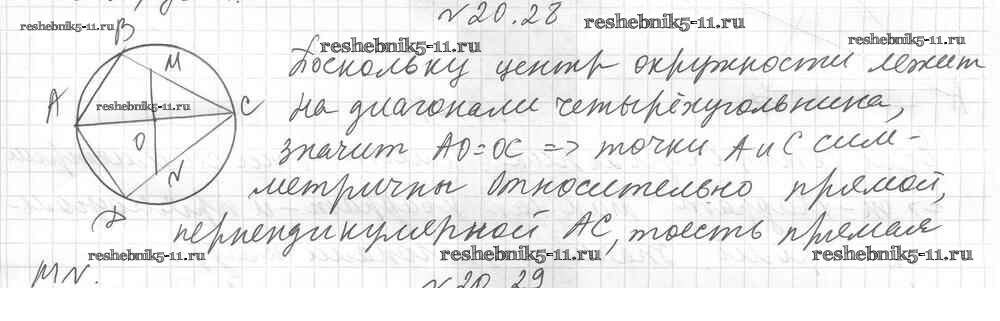 №20.28
reshebnik5-11.ru
reshebnik5-11.ru
reshebnik5-11.ru
reshebnik5-11.ru
B
M
A
C
O
N
D
reshebnik5-11.ru
Поскольку центр окружности лежит
на диагонали четырёхугольника,
значит AO=OC => точки A и C сим-
метричны относительно прямой,
перпендикулярной AC, тоесть прямая
MN.
reshebnik5-11.ru
reshebnik5-11.ru
reshebnik5-11.ru
№20.29